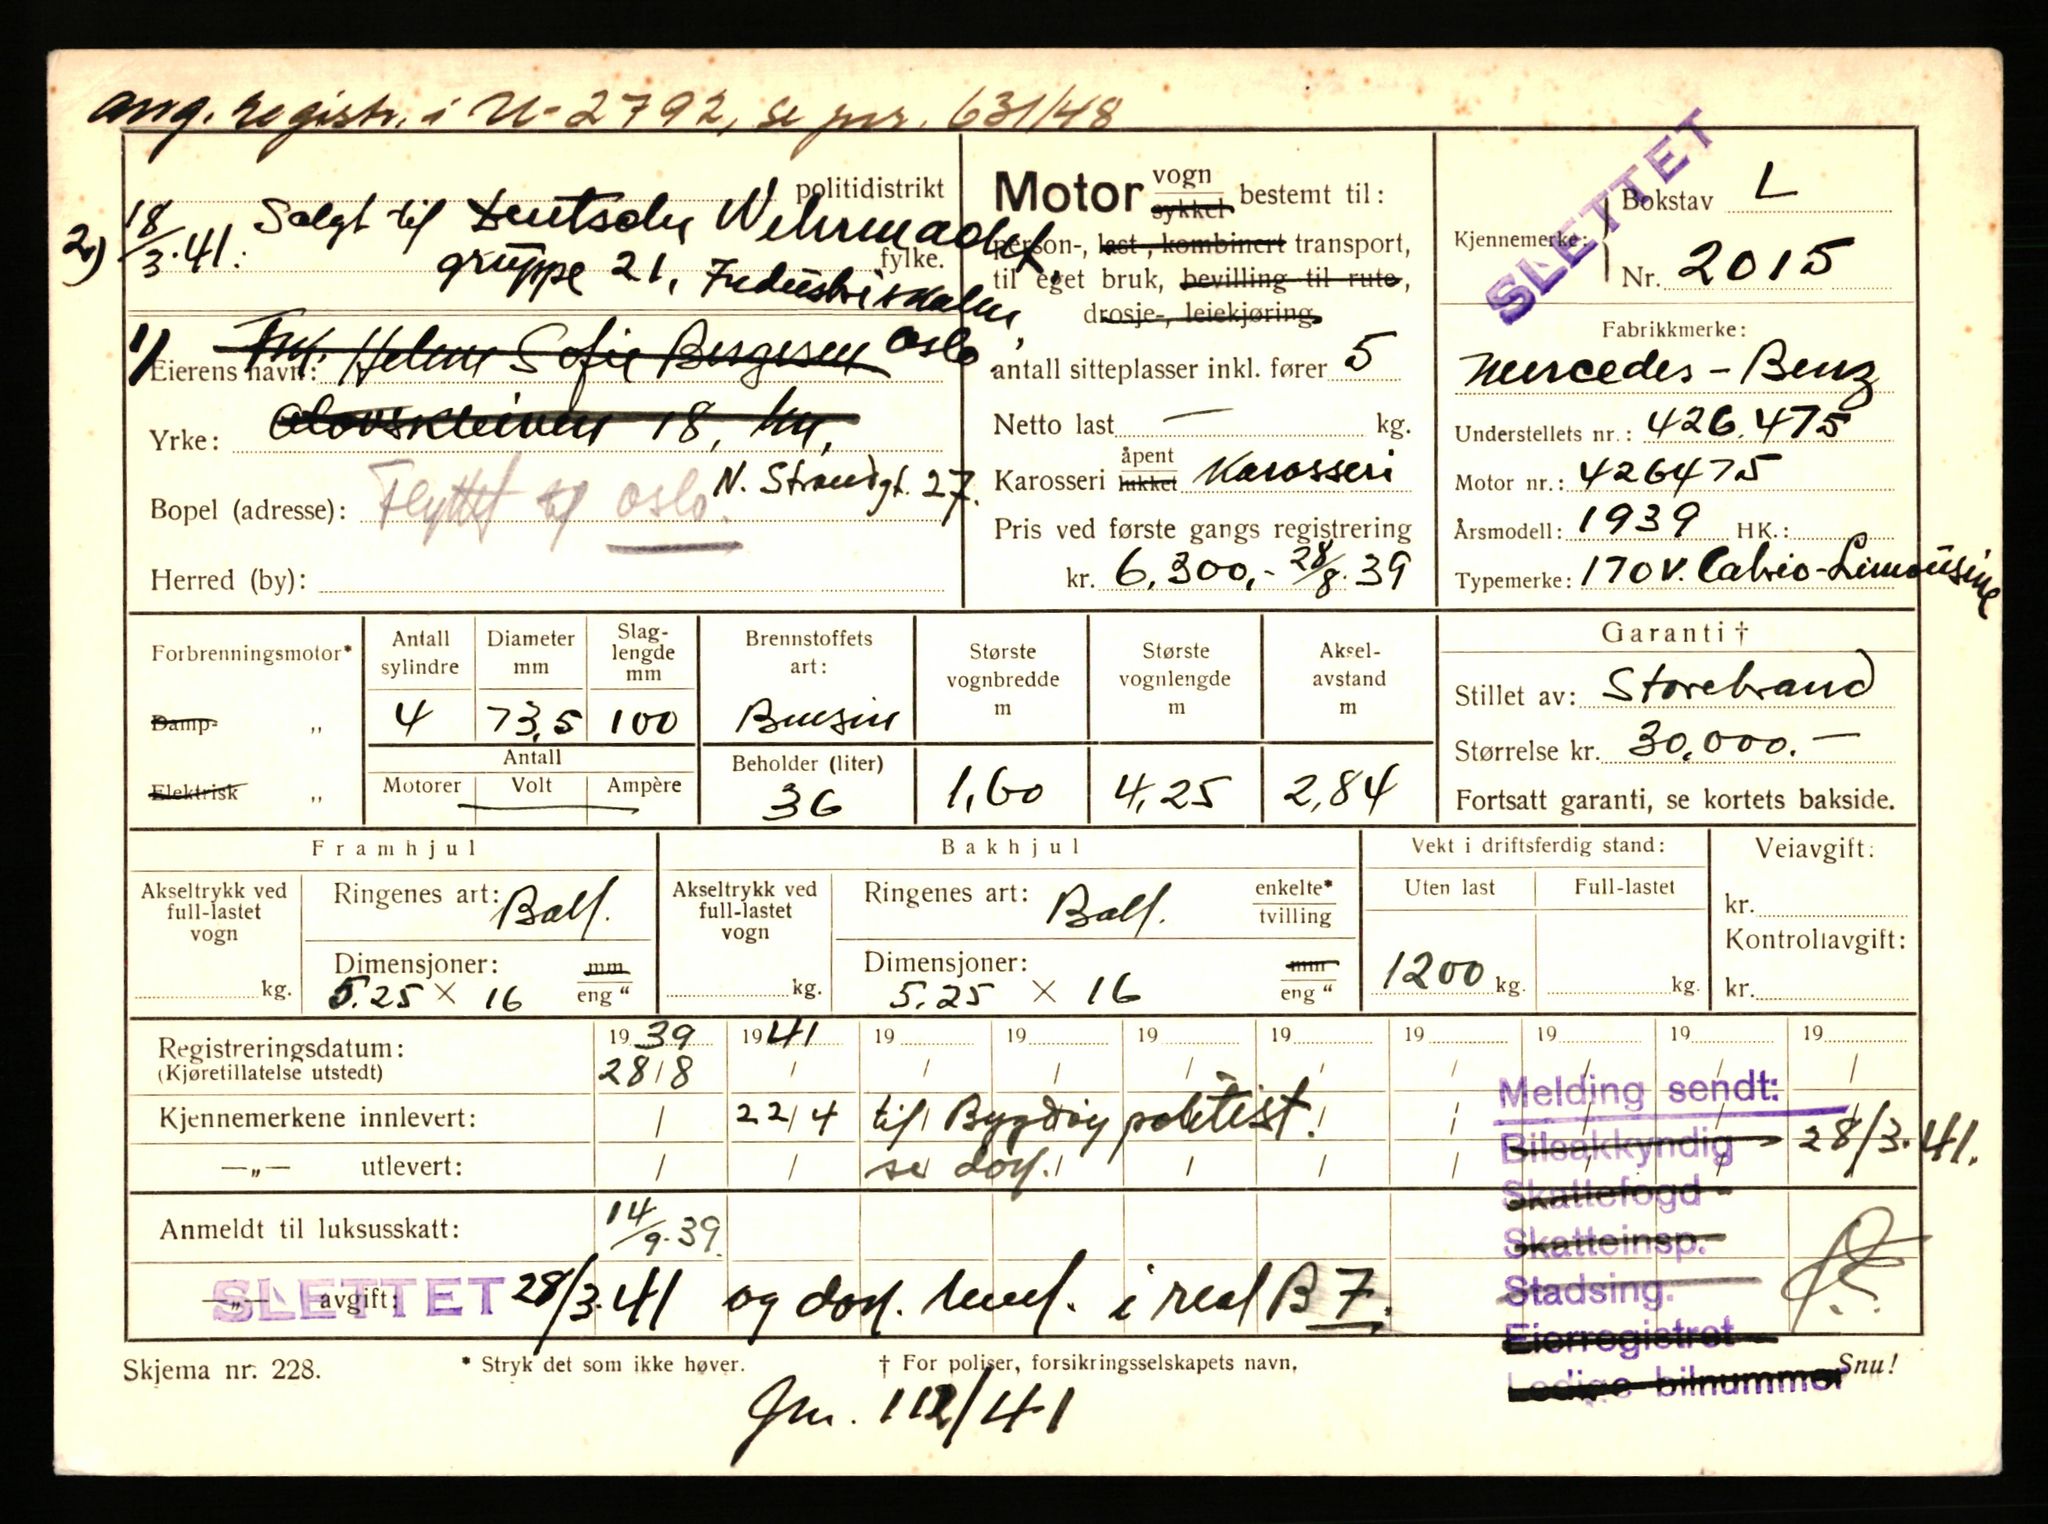 ang. registr. i U-2792, se jnr. 631/48
politidistrikt
2) 18/3.41. Solgt til Deutsche Wehrmacht,
fylke.
gruppe 21, Industriskolen,
Oslo
1) Frk. Helene Sofie Bergesen
Eierens navn:
Olavskleiven 18, her,
Yrke:
N. Strandgt. 27.
Bopel (adresse): Flyttet til Oslo.
Herred (by):
Motor vogn sykkel bestemt til:
person-, last-, kombinert transport,
til eget bruk, bevilling til rute,
drosje-, leiekjøring.
antall sitteplasser inkl. fører 5
Netto last — kg.
Karosseri åpent lukket Karosseri
Pris ved første gangs registrering
kr. 6,300,- 28/8.39
SLETTET
Kjennemerke: Bokstav L
Nr. 2015
Fabrikkmerke:
Mercedes-Benz
Understellets nr.: 426.475
Motor nr.: 426475
Årsmodell: 1939 HK.:
Typemerke: 170 V. Cabrio-Limousine
Forbrenningsmotor*
Damp- „
Elektrisk „
Antall sylindre
4
Diameter mm
73,5
Slaglengde mm
100
Antall
Motorer Volt Ampère
Brennstoffets art:
Bensin
Beholder (liter)
36
Største vognbredde m
1,60
Største vognlengde m
4,25
Akselavstand m
2,84
Garanti †
Stillet av: Storebrand
Størrelse kr. 30,000.—
Fortsatt garanti, se kortets bakside.
Framhjul
Akseltrykk ved full-lastet vogn
kg.
Ringenes art: Ball.
Dimensjoner: mm
5.25 × 16 eng "
Bakhjul
Akseltrykk ved full-lastet vogn
kg.
Ringenes art: Ball. enkelte* tvilling
Dimensjoner: mm
5.25 × 16 eng "
Vekt i driftsferdig stand:
Uten last Full-lastet
1200 kg. kg.
Veiavgift:
kr.
Kontrollavgift:
kr.
Registreringsdatum: 1939 1941 19 19 19 19 19 19 19 19
(Kjøretillatelse utstedt) 28/8 / / / / / / / / /
Kjennemerkene innlevert: / 22/4 til Bygdøy politist.
—„— utlevert: / / se dos.
Anmeldt til luksusskatt: 14/9.39.
—„— avgift: SLETTET 28/3.41 og dos. henl. i real B 7.
Melding sendt:
Bilsakkyndig 28/3.41.
Skattefogd
Skatteinsp.
Stadsing.
Eierregistret
Ledige bilnummer
Skjema nr. 228.
* Stryk det som ikke høver.
† For poliser, forsikringsselskapets navn.
Snu!
Jnr. 112/41